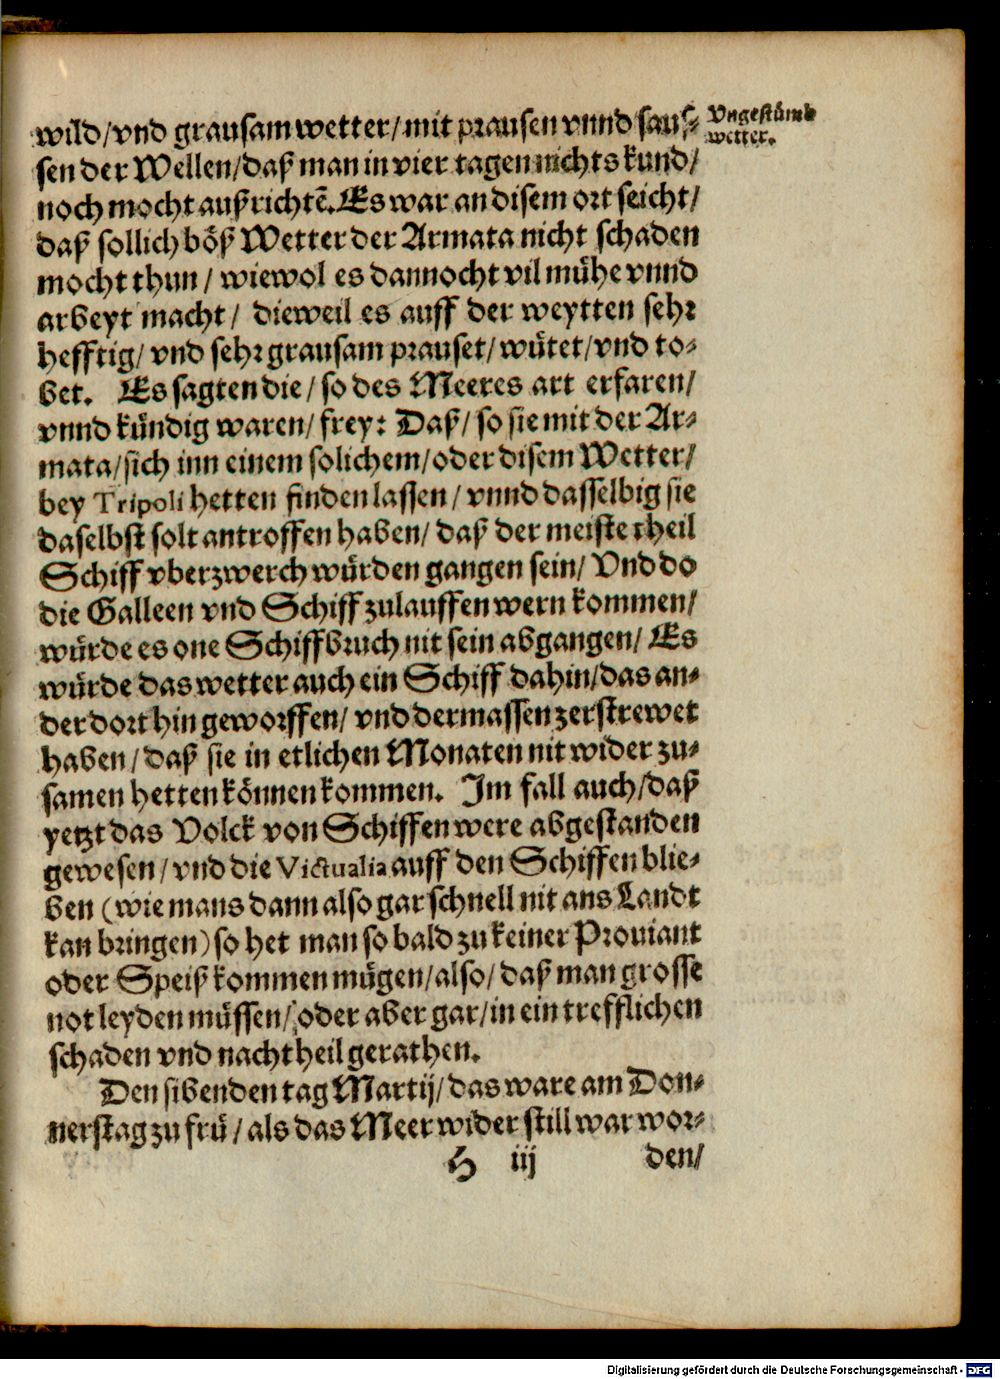 wild/vnd grausam wetter/mit prausen vnnd sauſ-
Vngestůmb
wetter.
sen der Wellen/daß man in vier tagen nichts kund/
noch mocht außrichtē. Es war an disem ort seicht/
daß sollich böß Wetter der Armata nicht schaden
mocht thun/ wiewol es dannocht vil mühe vnnd
arbeyt macht/ dieweil es auff der weytten sehr
hefftig/ vnd sehr grausam prauset/ wütet/vnd to-
bet. Es sagten die/ so des Meeres art erfaren/
vnnd kündig waren/ frey: Daß/ so sie mit der Ar-
mata/sich inn einem solichem/oder disem Wetter/
bey Tripoli hetten finden lassen/ vnnd dasselbig sie
daselbst solt antroffen haben/ daß der meiste theil
Schiff vberzwerch würden gangen sein/ Vnd do
die Galleen vnd Schiff zulauffen wern kommen/
würde es one Schiffbruch nit sein abgangen/ Es
würde das wetter auch ein Schiff dahin/das an-
der dort hin geworffen/ vnd dermassen zerstrewet
haben/daß sie in etlichen Monaten nit wider zu-
samen hetten können kommen. Im fall auch/daß
yetzt das Volck von Schiffen were abgestanden
gewesen/vnd die Victualia auff den Schiffen blie-
ben (wie mans dann also gar schnell nit ans Landt
kan bringen) so het man so bald zu keiner Prouiant
oder Speiß kommen mügen/also/daß man grosse
not leyden müssen/oder aber gar/in ein trefflichen
schaden vnd nachtheil gerathen.
Den sibenden tag Martij/das ware am Don-
nerstag zu frü/als das Meer wider still war wor-
H iij den/
Digitalisierung gefördert durch die Deutsche Forschungsgemeinschaft - DFG